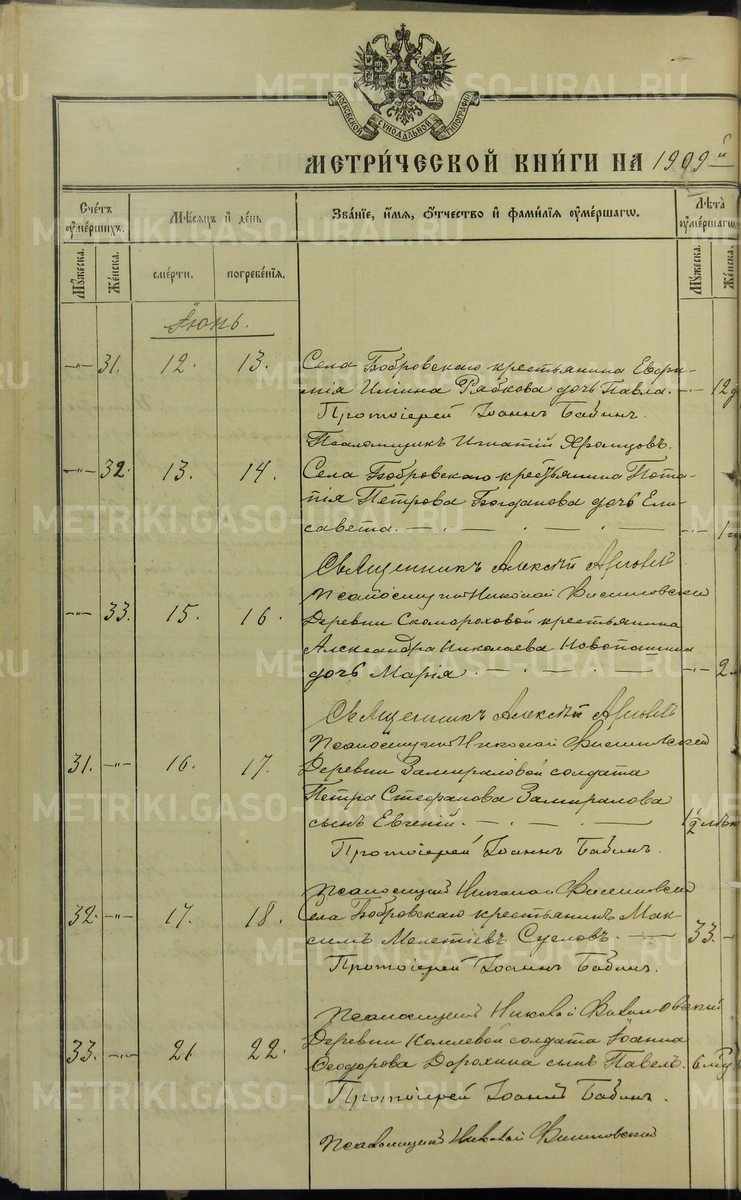 МОСКОВСКОЙ СѴНОДАЛЬНОЙ ТИПОГРАФІИ
МЕТРИ́ЧЕСКОЙ КНИ́ГИ НА 1909 й
Счетъ ᲂумершихъ. Мѣсяцъ и день Званіе, имя, отчество и фамилія ᲂумершагѡ. Лѣта ᲂумершагѡ
Мужеска. Женска. смерти. погребенія. Мужеска. Женска.
Іюнь.
—"— 31. 12. 13. Села Бобровскаго крестьянина Евфи-
мія Илiина Рябкова дочь Павла. —"— 12 д
Протоіерей Іоаннъ Бабинъ.
Псаломщикъ Игнатій Храмцовъ.
—"— 32. 13. 14. Села Бобровскаго крестьянина Пота-
пія Петрова Богданова дочь Ели-
савета. —"— 1
Священникъ Алексѣй
Псаломщикъ Николай
—"— 33. 15. 16. Деревни Скомороховой крестьянина
Александра Николаева Новопашина
дочь Марія —"— 2
Священникъ Алексѣй
Псаломщикъ Николай
31. —"— 16. 17. Деревни Замираловой солдата
Петра Стефанова Замиралова
сынъ Евгеній. 1/2
Протоіерей Іоаннъ Бабинъ.
Псаломщикъ Николай
32. —"— 17. 18. Села Бобровскаго крестьянинъ Мак-
симъ Мелетіевъ Сусловъ. 33.
Протоіерей Іоаннъ Бабинъ.
Псаломщикъ Николай
33. —"— 21 22. Деревни солдата Іоанна
Ѳеодорова Дорохина сынъ Павелъ. 6
Протоіерей Іоаннъ Бабинъ.
Псаломщикъ Николай
METRIKI.GASO-URAL.RU